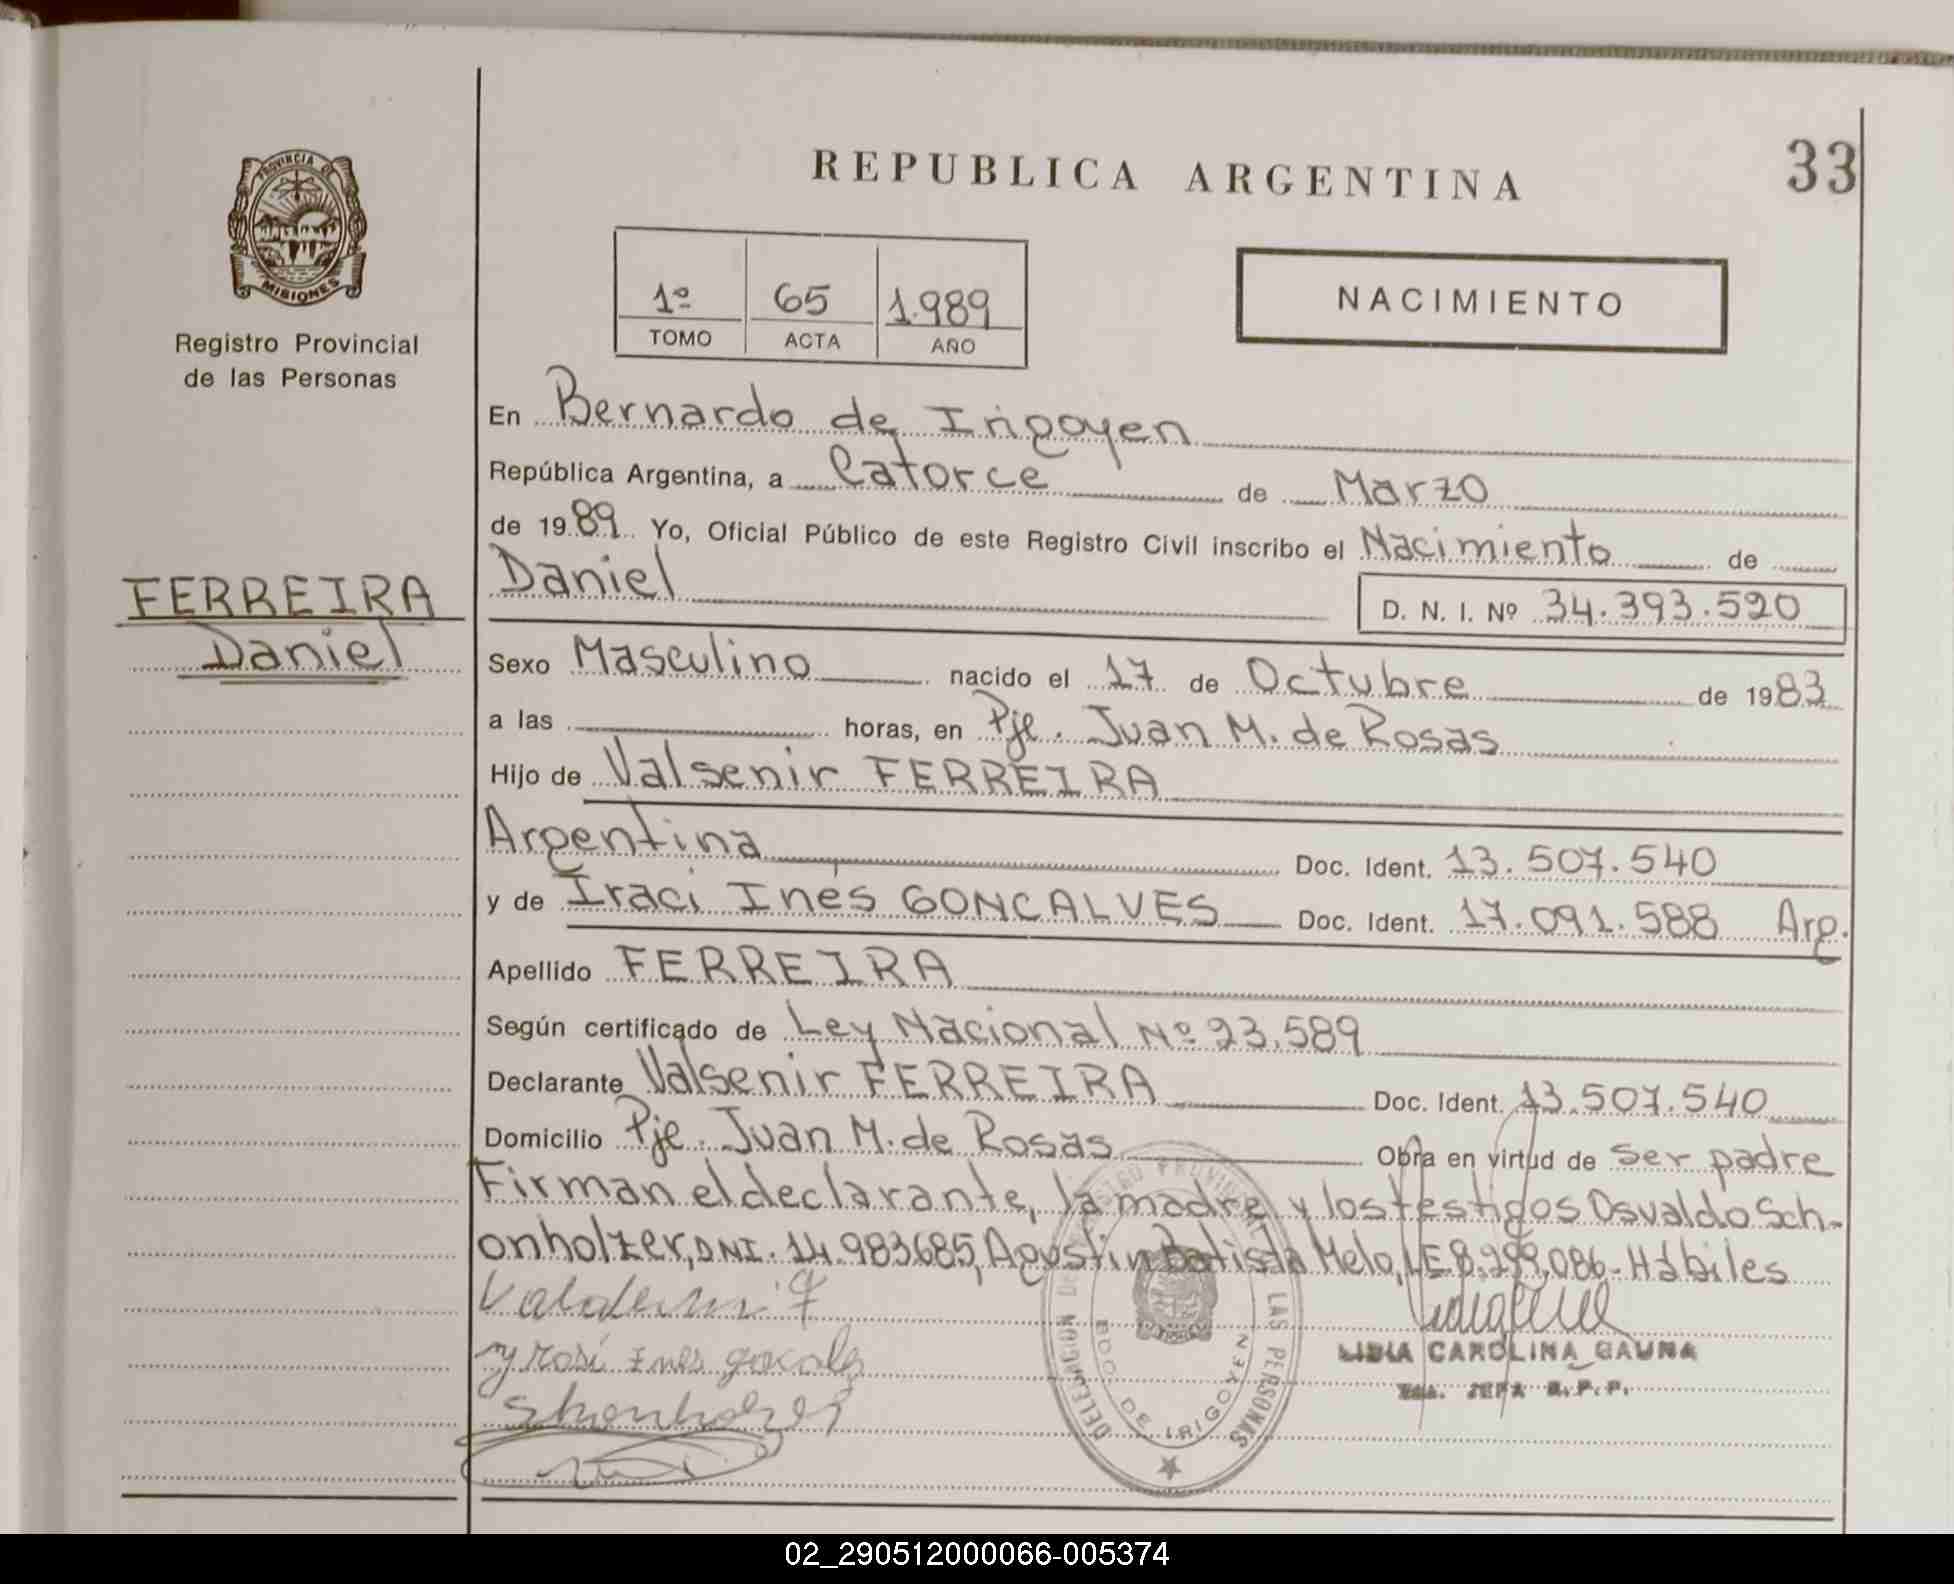 REPUBLICA ARGENTINA
33
PROVINCIA DE
MISIONES
Registro Provincial
de las Personas
1º 65 1.989
TOMO ACTA AÑO
NACIMIENTO
En Bernardo de Irigoyen
República Argentina, a Catorce de Marzo
de 1989. Yo, Oficial Público de este Registro Civil inscribo el Nacimiento de
FERREIRA
Daniel
Daniel
D. N. I. Nº 34.393.520
Sexo Masculino nacido el 17 de Octubre de 1983
a las horas, en Pje. Juan M. de Rosas
Hijo de Valsenir FERREIRA
Argentina Doc. Ident. 13.507.540
y de Iraci Inés GONCALVES Doc. Ident. 17.091.588 Arg.
Apellido FERREIRA
Según certificado de Ley Nacional Nº 23.589
Declarante Valsenir FERREIRA Doc. Ident. 13.507.540
Domicilio Pje. Juan M. de Rosas Obra en virtud de ser padre
Firman el declarante, la madre y los testigos Osvaldo Sch-
onholzer, DNI. 14.983685, Agustin Batista Melo, LE 8.299.086.- Hábiles
LIDIA CAROLINA GAUNA
JEFA R.P.P.
REGISTRO PROVINCIAL DE LAS PERSONAS
BDO DE IRIGOYEN
02_290512000066-005374